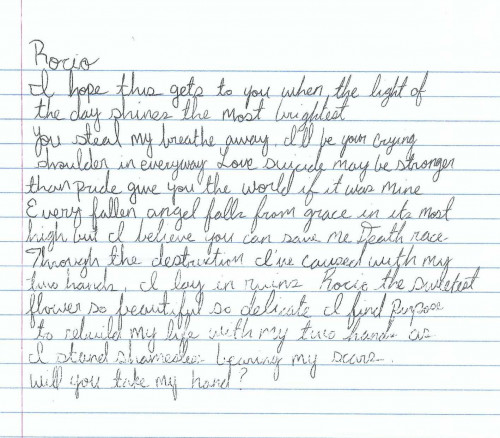 Rocio
I hope this gets to you when the light of
the day shines the most brightest
You steal my breathe away, I'll be your crying
shoulder in everyway Love suicide may be stronger
than pride give you the world if it was mine
Every fallen angel falls from grace in its most
high but I believe you can save me Death race
Through the destruction I've caused with my
two hands, I lay in ruins Rocio the sweetest
flower so beautiful so delicate I find purpose
to rebuild my life with my two hands as
I stand shameless bearing my scars.
will you take my hand?